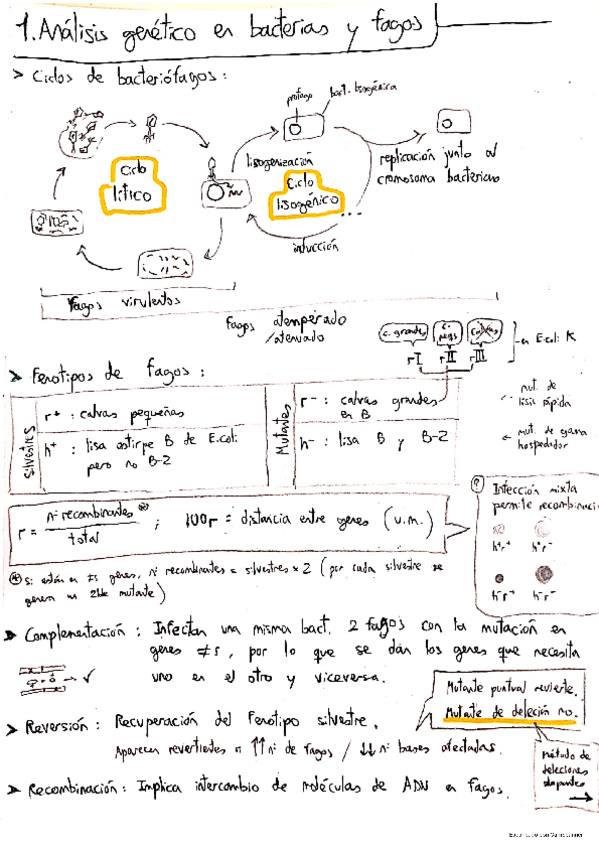 1. Análisis genético en bacterias y fagos
> Ciclos de bacteriófagos:
profago
bact. lisogénica
lisogenización
replicación junto al
cromosoma bacteriano
Ciclo
lítico
Ciclo
lisogénico
...
inducción
Fagos virulentos
Fagos atemperado
/atenuado
c. grandes
c. peqs
calvas
rI rII rIII
en E.coli K
> Fenotipos de fagos:
Silvestres
r+ : calvas pequeñas
h+ : lisa estirpe B de E.coli
pero no B-2
Mutantes
r- : calvas grandes
en B
h- : lisa B y B-2
mut. de
lisis rápida
mut. de gama
hospedador
r = nº recombinantes (*) / total ; 100r = distancia entre genes (u.m.)
? Infección mixta
permite recombinación
h+r+ h+r-
h-r+ h-r-
(*) si están en ≠s genes, nº recombinantes = silvestres × 2 (por cada silvestre se
genera un doble mutante)
> Complementación : Infectan una misma bact. 2 fagos con la mutación en
genes ≠s, por lo que se dan los genes que necesita
uno en el otro y viceversa.
Mutante puntual revierte.
Mutante de deleción no.
> Reversión : Recuperación del fenotipo silvestre.
Aparecen revertientes a ↑↑ nº de fagos / ↓↓ nº bases afectadas.
método de
deleciones
solapantes
> Recombinación : Implica intercambio de moléculas de ADN en fagos.